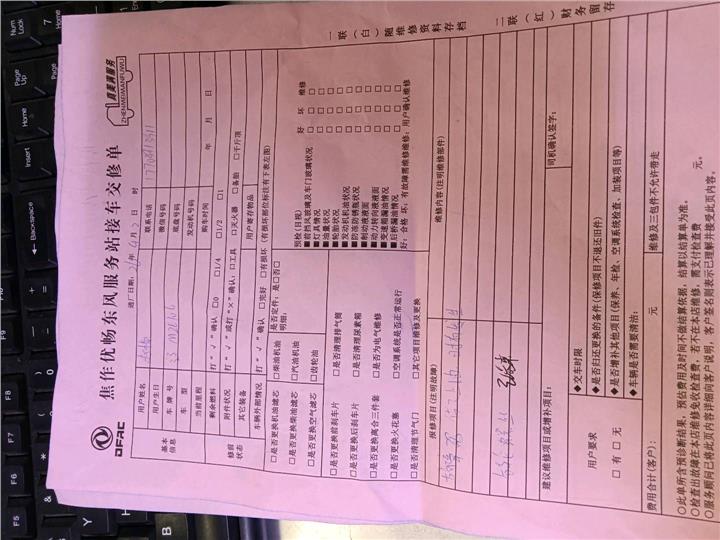 DFAC
焦作优畅东风服务站接车交修单
真美满服务
ZHENMEIMANFUWU
进厂日期: 年 月 2 日 时
基本信息
用户姓名
联系电话
用户生日
微信号码
车牌号
底盘号码
车型
发动机号码
当前里程
购车时间 年 月 日
修前状态
剩余燃料 打“√”确认 □0 □1/4 □1/2 □1
附件状况 打“√”或打“×”确认 □工具 □灭火器 □备胎 □千斤顶
其它装备
用户留存物品
车辆外部情况 打“√”确认 □完好 □有损坏(有损坏部位标注有下表左图)
□是否更换机油滤芯 □柴油机油
□是否更换柴油滤芯 □汽油机油
□是否更换空气滤芯 □齿轮油
是否定件:是□否□
明细:
□是否更换前刹车片 □是否清理排气筒
□是否更换后刹车片 □是否清理尿素箱
□是否更换离合三件套 □是否为电气维修
□是否更换火花塞 □空调系统是否正常运行
□是否清理节气门 □其它项目修及更换
预检(目视) 好 坏 维修
■前挡风玻璃及车门玻璃状况
■灯具情况
■油量状况
■轮胎状况
■发动机机油状况
■防冻防锈瓶状况
■制动液液面
■动力转向液液面
■变速箱漏油情况
■后桥漏油情况
好:合格 坏:有故障需维修维修:用户确认维修
报修项目(注明故障): 维修内容(注明维修部件)
建议维修项目或增补项目: 司机确认签字:
用户要求
□有 □无
◆交车时限
◆是否归还更换的备件(保修项目不退还旧件)
◆是否增补其他项目(保养、年检、空调系统检查、加装项目等)
◆车辆是否需要清洁:
费用合计(客户): 元 维修及三包件不允许带走
○此单所含预诊断结果、预估费用及时间不做结算依据,结算以结算单为准。
○检查出故障在本店维修免收检查费,若不在本店维修,需支付检查费 元。
○服务顾问已将此页内容详细向客户说明,客户签名则表示已理解并接受此页内容。
一联(白)随维修资料存档
二联(红)财务留存